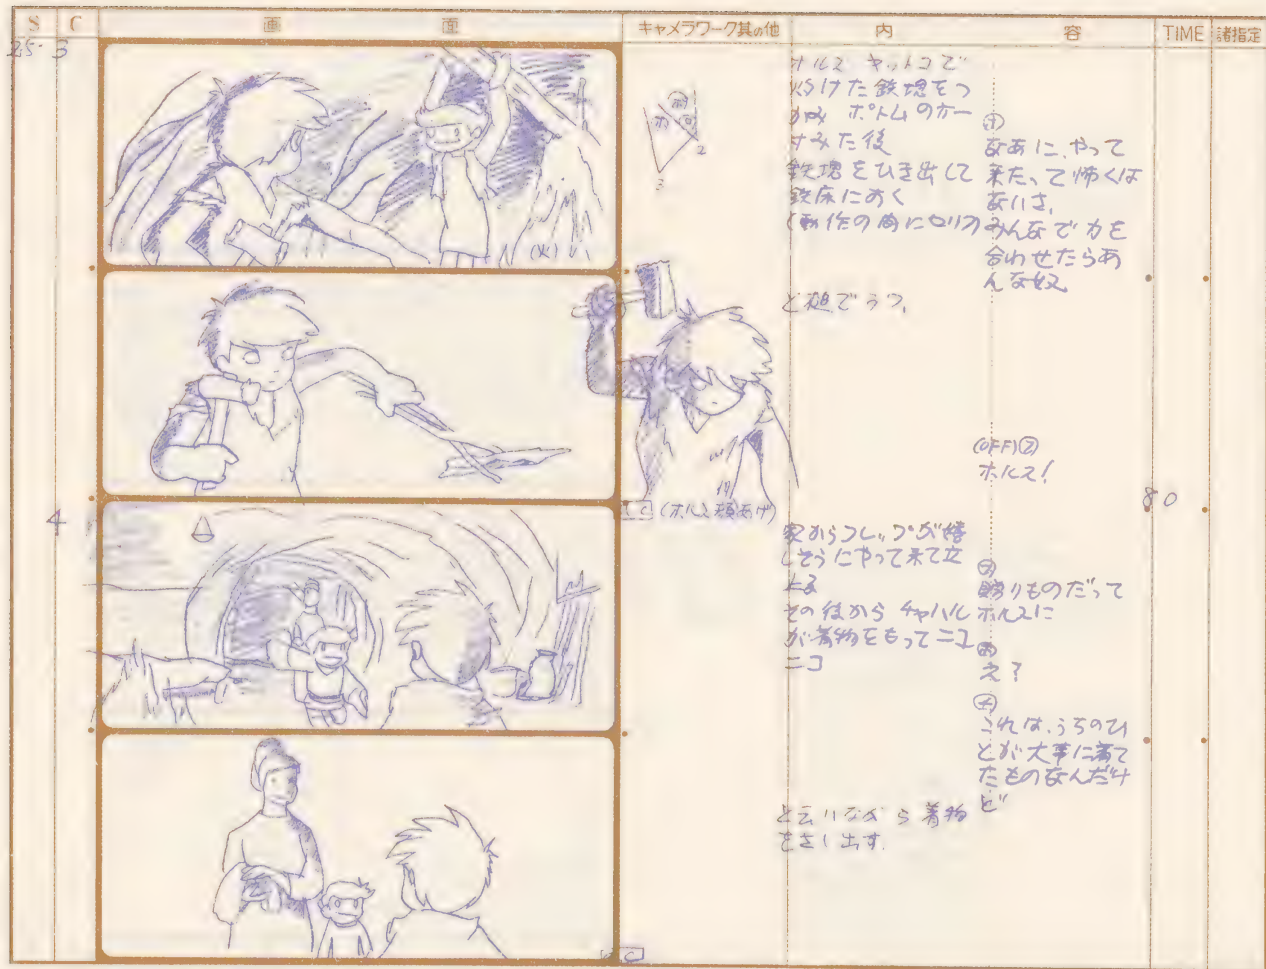 S C 画 面 キャメラワーク其の他 内 容 TIME 諸指定
25 3
ホルス ヤットコで
やけた鉄塊をつ
かみ ポトムの方へ
すみた後
鉄塊をひき出して
鉄床におく
(動作の間にセリフ)
ホ
なあに、やって
来たって怖くは
ないさ、
みんなで力を
合わせたらあ
んな奴
2
3
(火)
と槌でうつ。
(OFF)フ
ホルス!
C (ホルス顔あげ)
80
4
家からフレップが嬉
しそうにやって来て立
上る
その後から チャハル
が着物をもってニコ
ニコ
フ
贈りものだって
ホルスに
ホ
え?
チ
これは、うちのひ
とが大事に着て
たものなんだけ
ど
と云いながら着物
をさし出す。
C